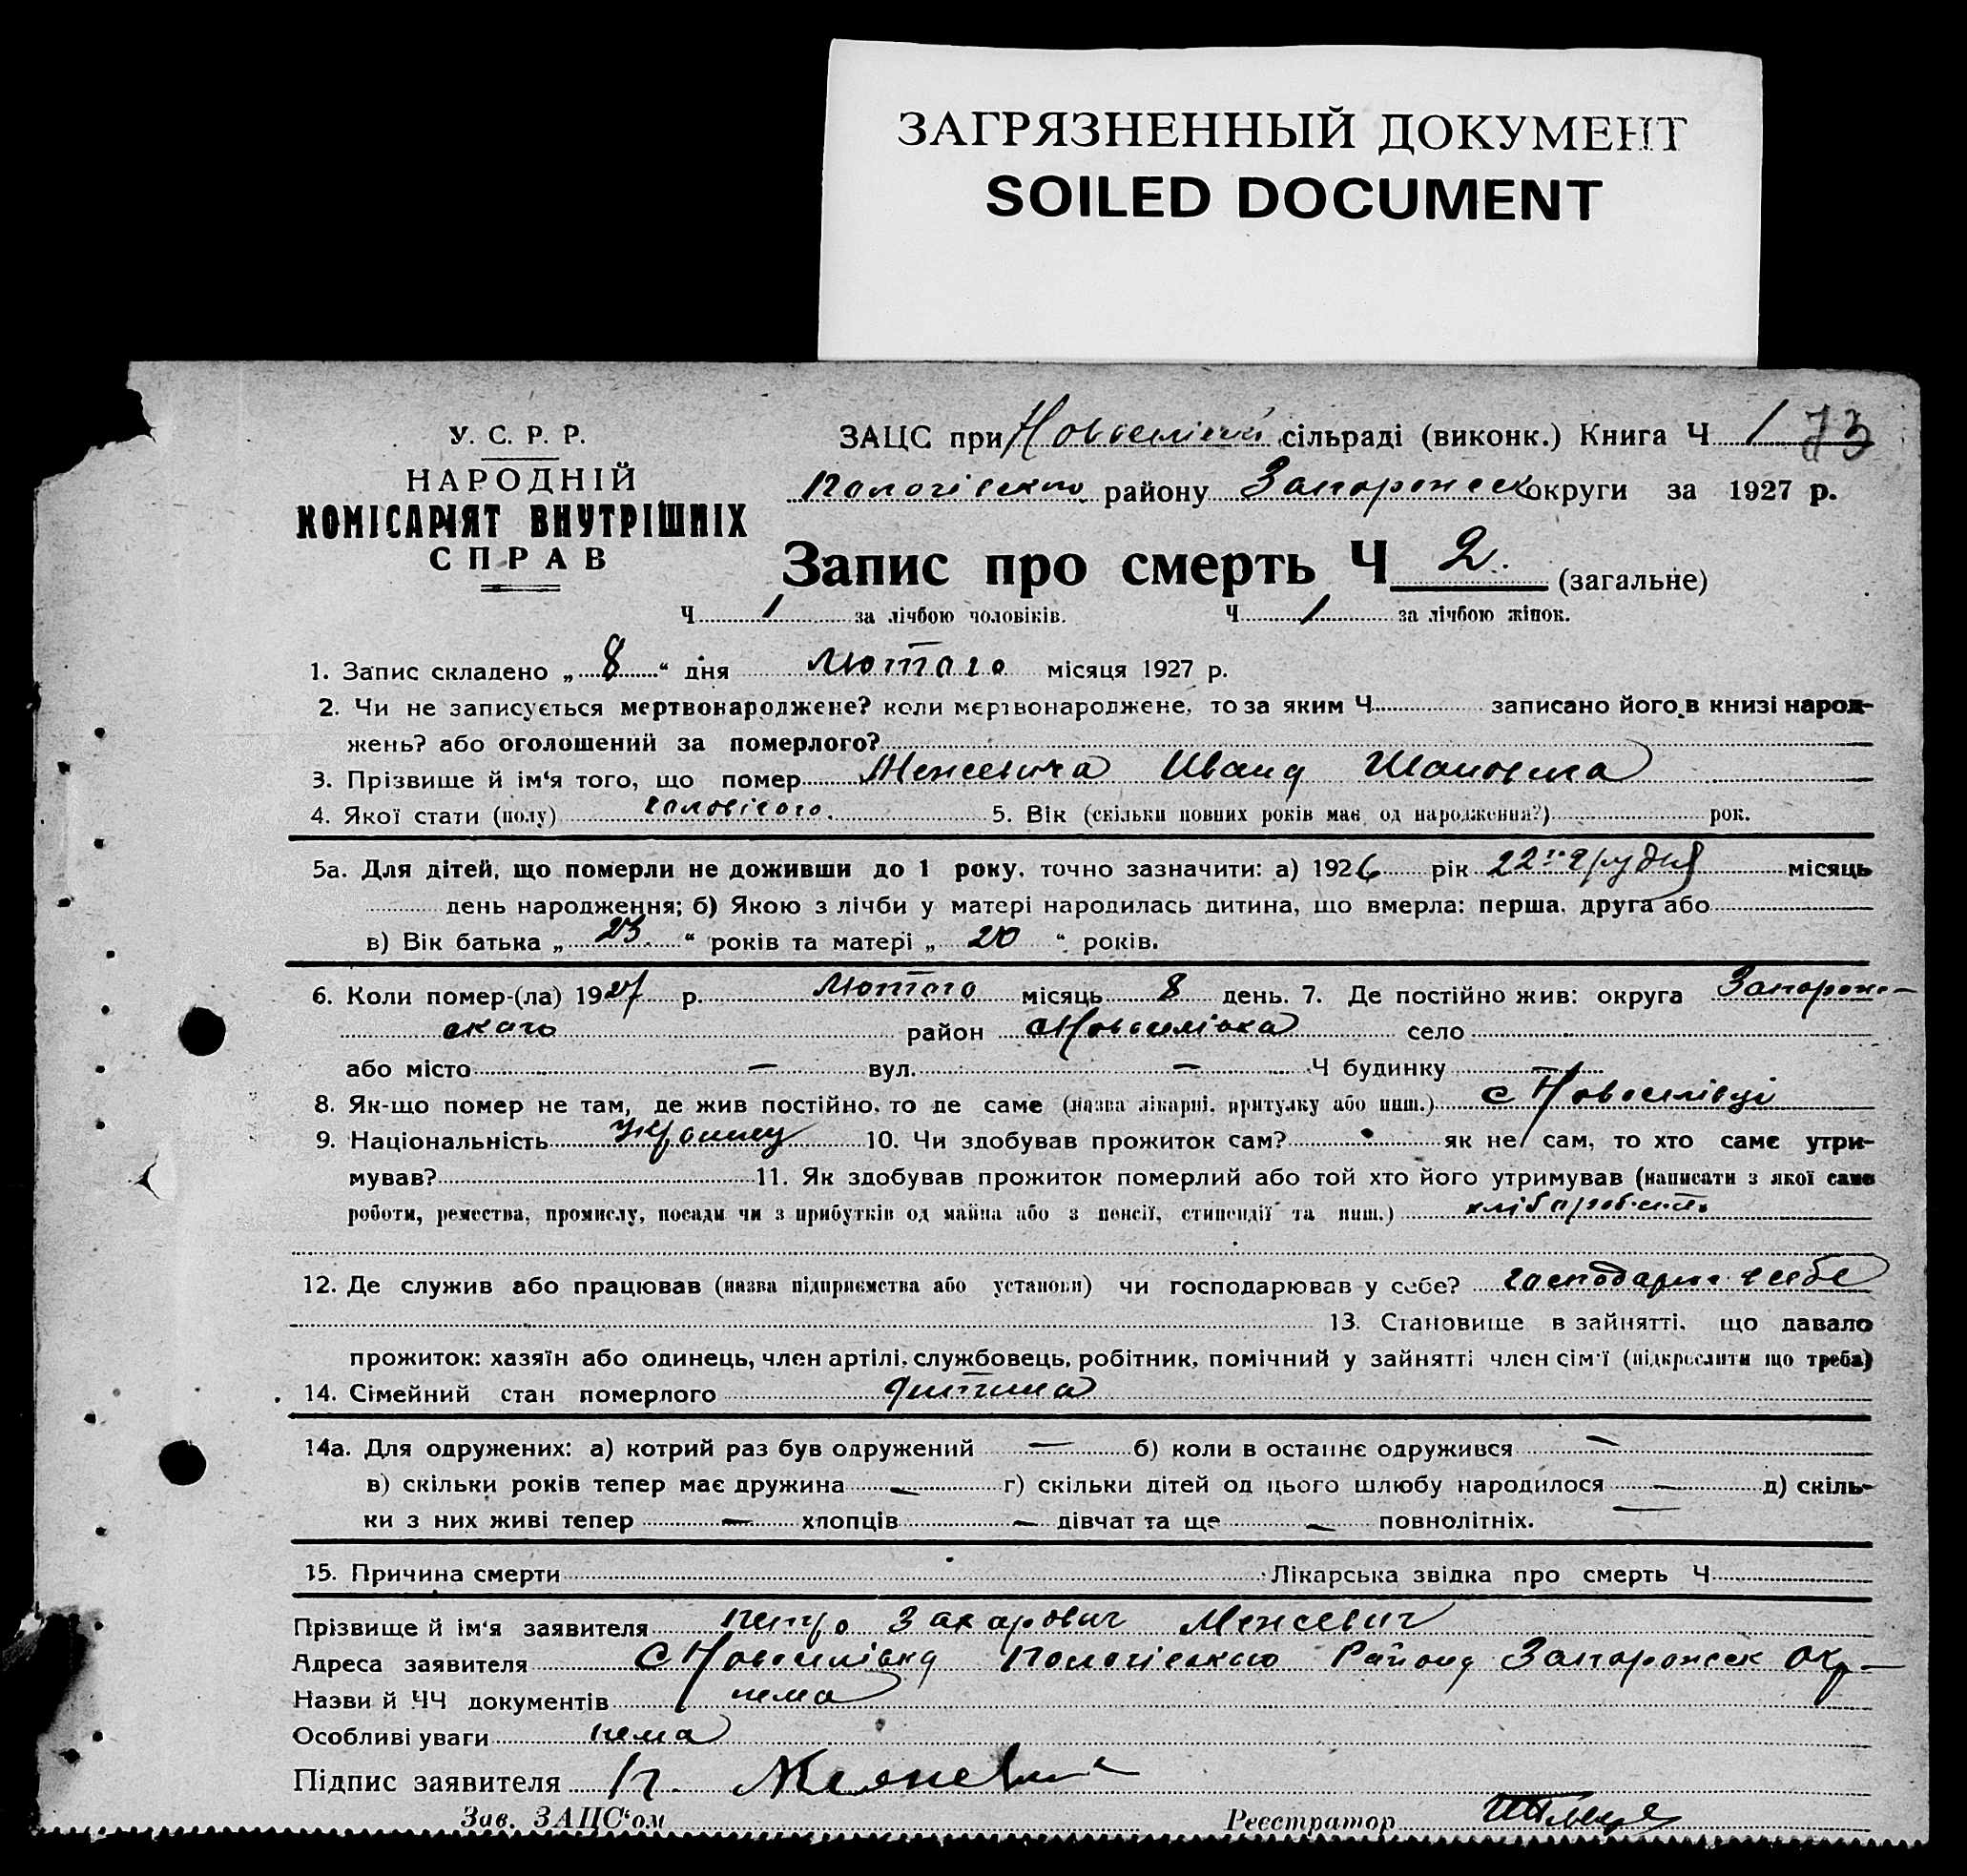 ЗАГРЯЗНЕННЫЙ ДОКУМЕНТ
SOILED DOCUMENT
У. С. Р. Р.
НАРОДНІЙ
КОМІСАРІЯТ ВНУТРІШНІХ
СПРАВ
ЗАЦС при сільраді (виконк.) Книга Ч 1 73
Пологівського району Запорожск округи за 1927 р.
Запис про смерть Ч 2. (загальне)
Ч 1 за лічбою чоловіків. Ч 1 за лічбою жінок.
1. Запис складено „ 8 “ дня лютого місяця 1927 р.
2. Чи не записується мертвонароджене? коли мертвонароджене, то за яким Ч записано його в книзі народ-
жень? або оголошений за померлого?
3. Прізвище й ім‘я того, що помер
4. Якої стати (полу) 5. Вік (скільки повних років має од народження?) рок.
5а. Для дітей, що померли не доживши до 1 року, точно зазначити: а) 1926 рік 22го грудня місяць
день народження; б) Якою з лічби у матері народилась дитина, що вмерла: перша, друга або
в) Вік батька „ 23 “ років та матері „ 20 “ років.
6. Коли помер-(ла) 1927 р. лютого місяць 8 день. 7. Де постійно жив: округа Запорож-
ского район с Новоселівка село
або місто — вул. — Ч будинку —
8. Як-що помер не там, де жив постійно, то де саме (назва лікарні, притулку або инш.) с Новоселівці
9. Національність 10. Чи здобував прожиток сам? як не сам, то хто саме утри-
мував? 11. Як здобував прожиток померлий або той хто його утримував (написати з якої саме
роботи, ремества, промислу, посади чи з прибутків од майна або з пенсії, стипендії та инш.)
12. Де служив або працював (назва підприємства або установи) чи господарював у себе?
13. Становище в зайнятті, що давало
прожиток: хазяїн або одинець, член артілі, службовець, робітник, помічний у зайнятті член сім‘ї (підкреслити що треба)
14. Сімейний стан померлого дитина
14а. Для одружених: а) котрий раз був одружений — б) коли в останнє одружився —
в) скільки років тепер має дружина — г) скільки дітей од цього шлюбу народилося — д) скіль-
ки з них живі тепер — хлопців — дівчат та ще — повнолітніх. —
15. Причина смерти Лікарська звідка про смерть Ч
Прізвище й ім‘я заявителя Петро Захарович Менсевич
Адреса заявителя с Новоселівка Пологівського Району Запорожск Окр—
Назви й ЧЧ документів нема
Особливі уваги нема
Підпис заявителя П.
Зав. ЗАЦС‘ом Реєстратор